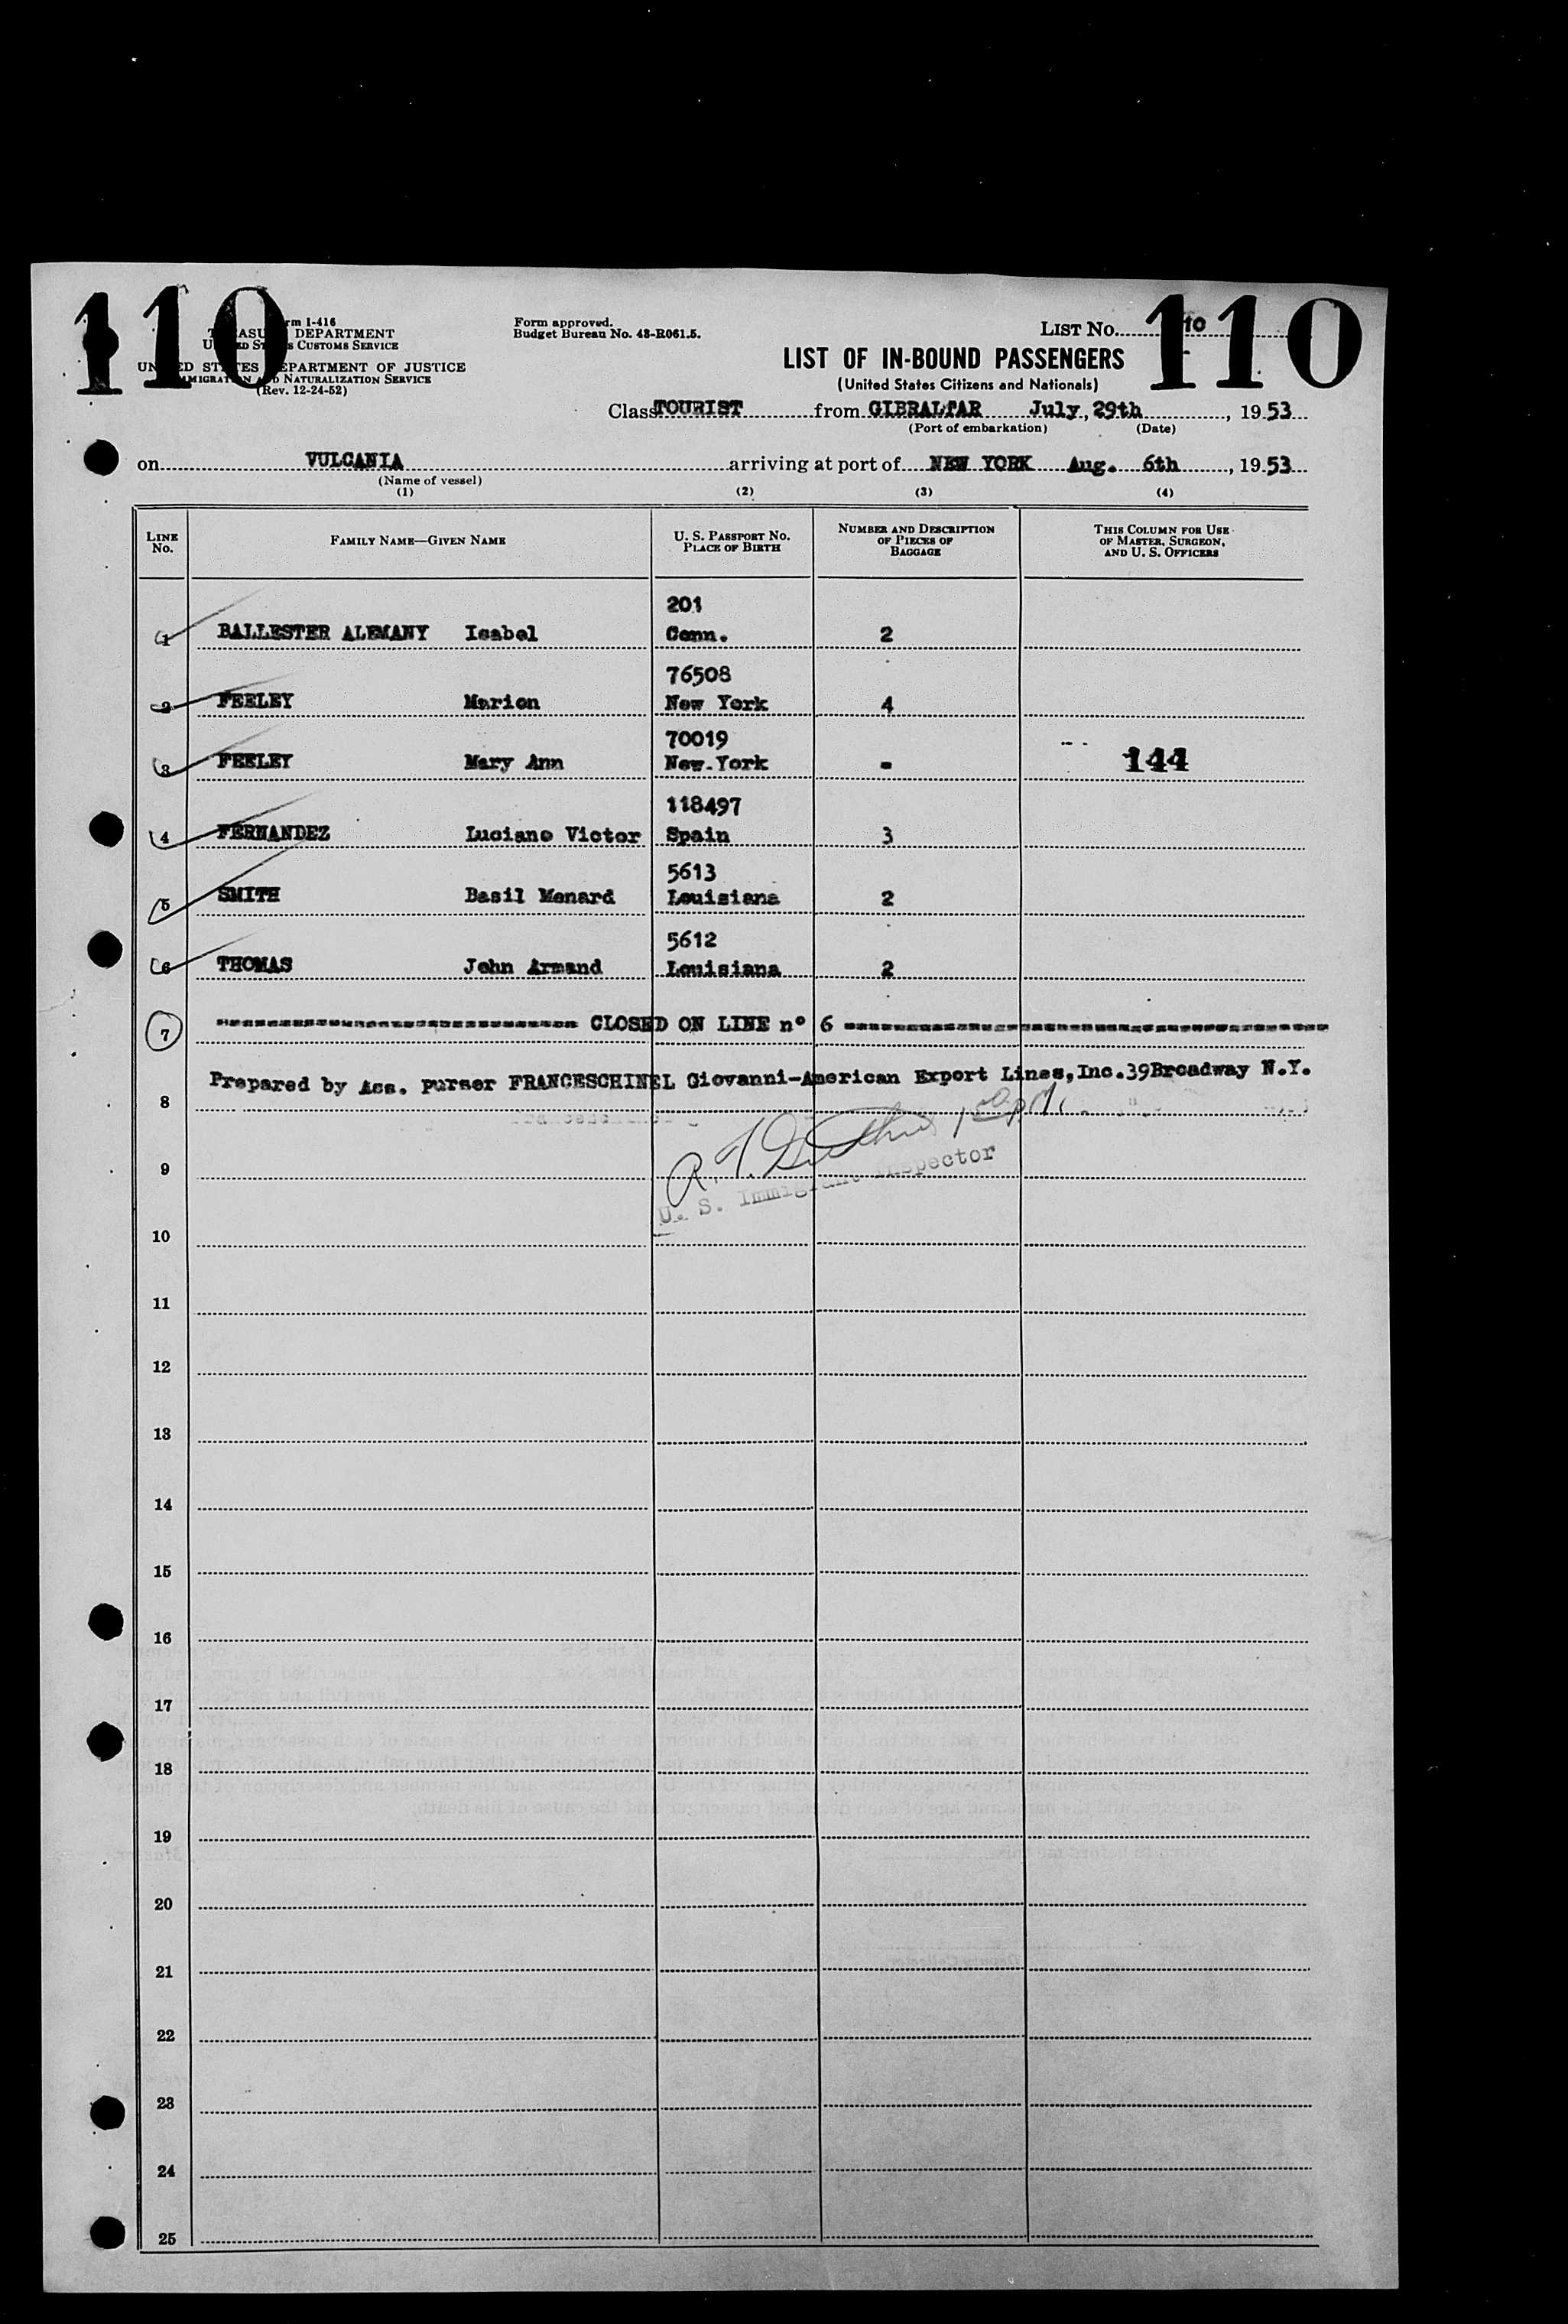 110
110
Form I-416
TREASURY DEPARTMENT
UNITED STATES CUSTOMS SERVICE
UNITED STATES DEPARTMENT OF JUSTICE
IMMIGRATION AND NATURALIZATION SERVICE
(Rev. 12-24-52)
Form approved.
Budget Bureau No. 43-R061.5.
LIST No. 10
LIST OF IN-BOUND PASSENGERS
(United States Citizens and Nationals)
Class TOURIST from GIBRALTAR July, 29th, 19 53
(Port of embarkation) (Date)
on VULCANIA arriving at port of NEW YORK Aug. 6th, 19 53
(Name of vessel)
(1) (2) (3) (4)
LINE No. FAMILY NAME—GIVEN NAME U. S. PASSPORT No. PLACE OF BIRTH NUMBER AND DESCRIPTION OF PIECES OF BAGGAGE THIS COLUMN FOR USE OF MASTER, SURGEON, AND U. S. OFFICERS
201
1 BALLESTER ALEMANY Isabel Conn. 2
76508
2 FEELEY Marion New York 4
70019
3 FEELEY Mary Ann New York - 144
118497
4 FERNANDEZ Luciano Victor Spain 3
5613
5 SMITH Basil Menard Louisiana 2
5612
6 THOMAS John Armand Louisiana 2
7 CLOSED ON LINE n° 6
Prepared by Ass. purser FRANCESCHINEL Giovanni-American Export Lines,Inc.39Broadway N.Y.
8
9
U. S. Immigrant Inspector
10
11
12
13
14
15
16
17
18
19
20
21
22
23
24
25